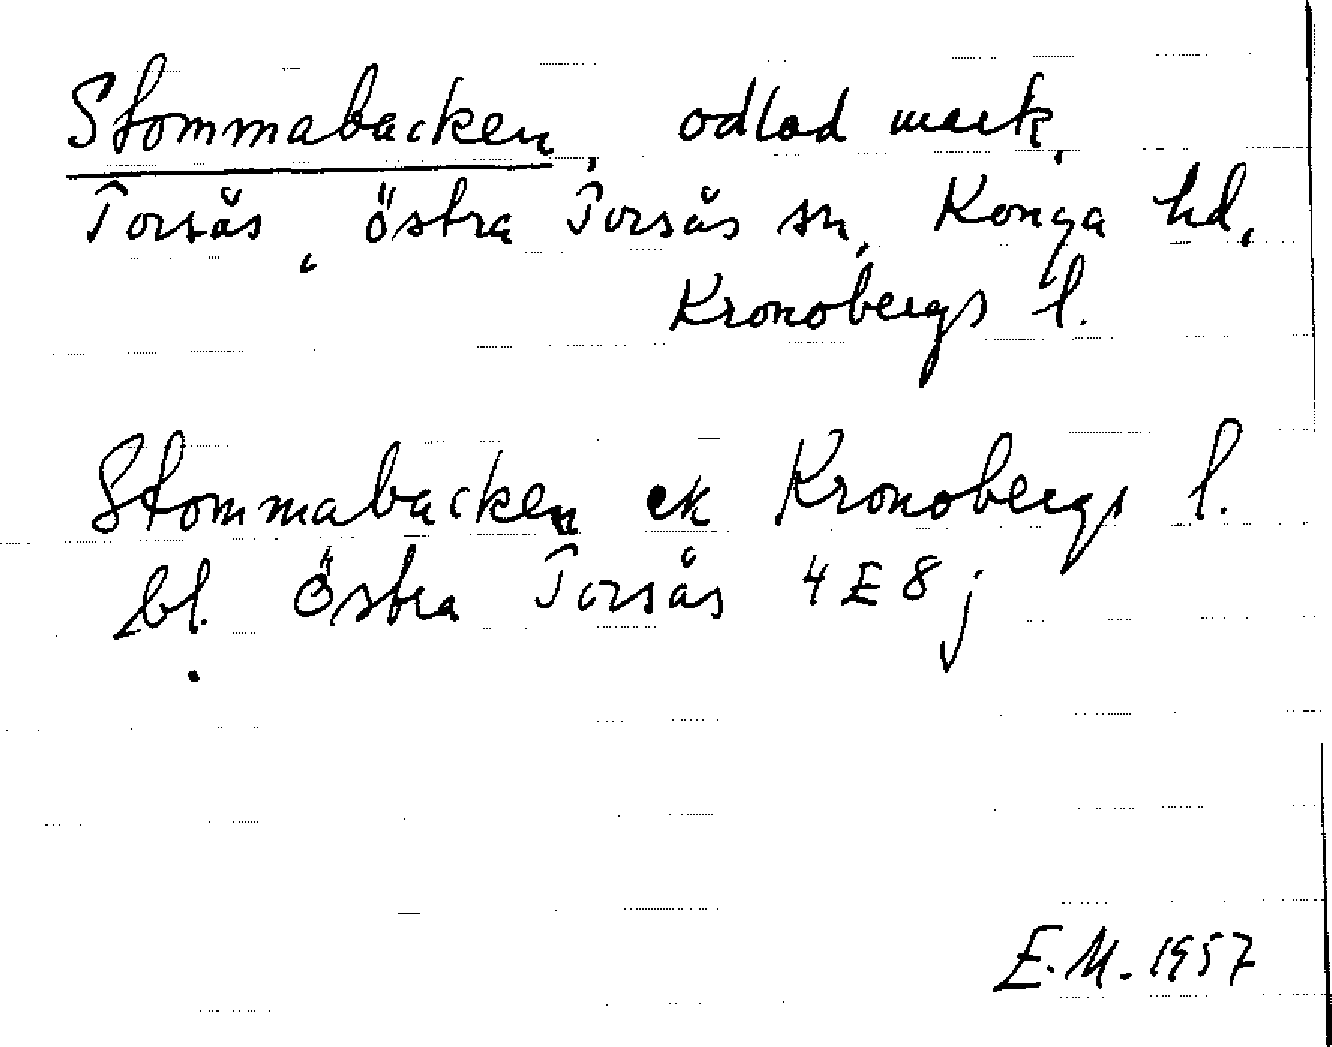 Stommabacken, odlad mark,
Torsås, Östra Torsås sn, Konga hd,
Kronobergs l.
Stommabacken ek Kronobergs l.
bl. Östra Torsås 4E8j
E.M. 1957